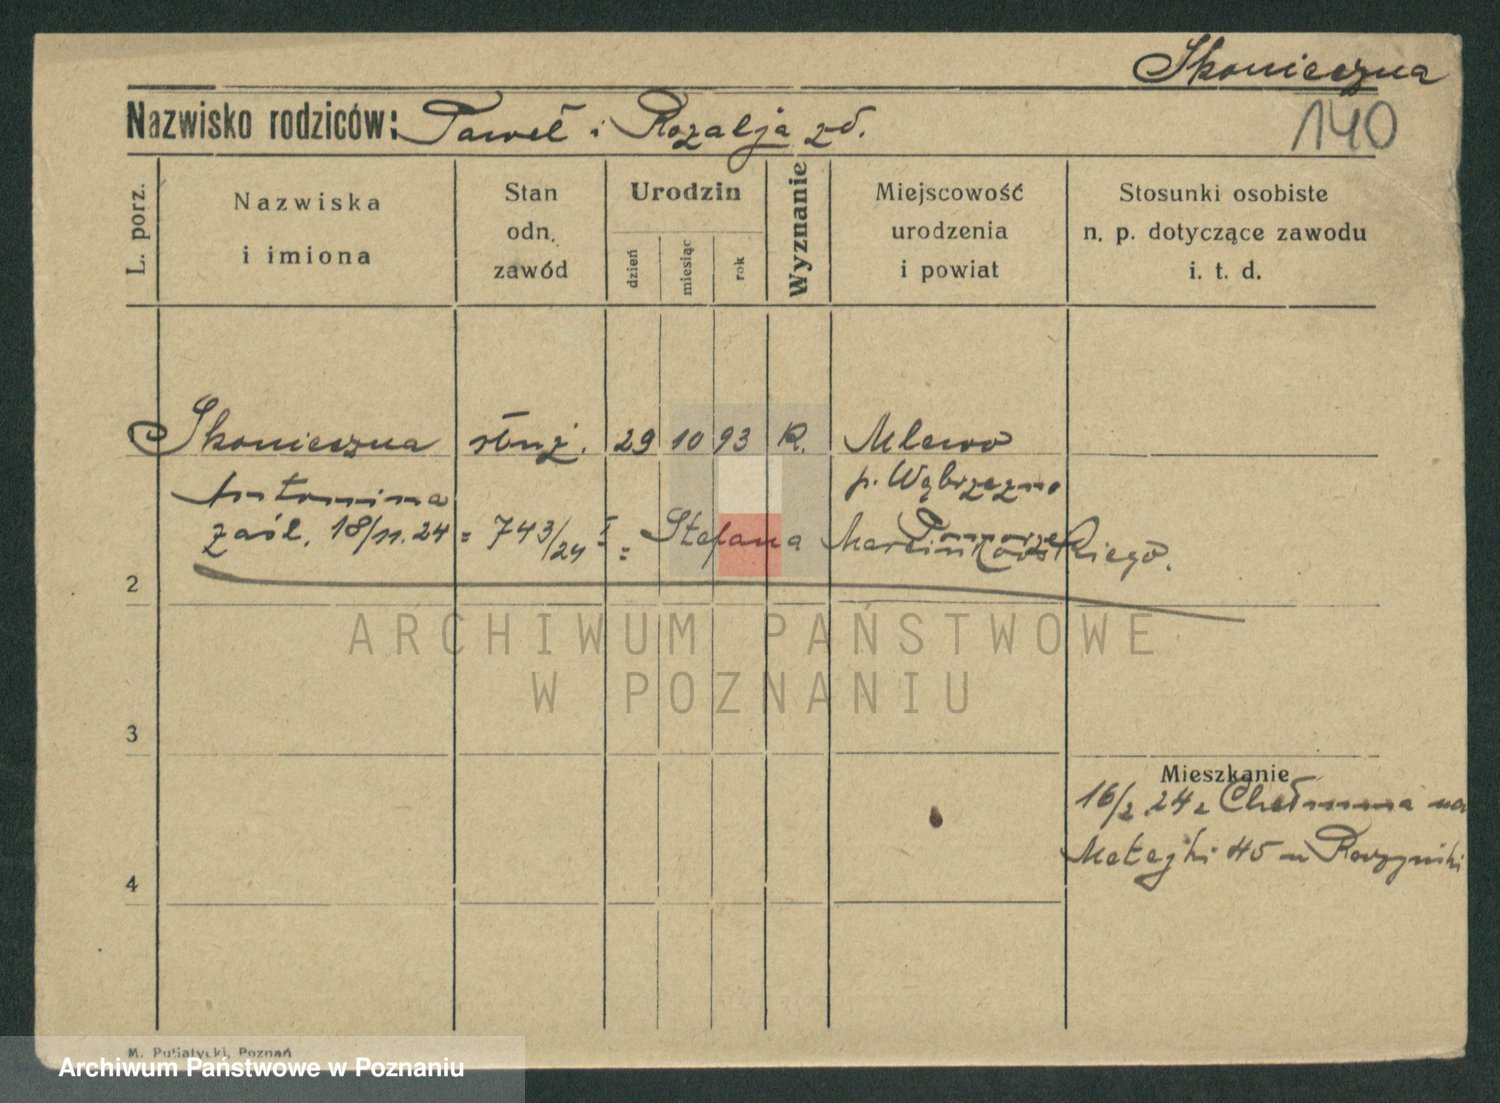 Skonieczna
Nazwisko rodziców: Paweł i Rozalja zd.
140
L. porz.
Nazwiska
i imiona
Stan
odn.
zawód
Urodzin
dzień
miesiąc
rok
Wyznanie
Miejscowość
urodzenia
i powiat
Stosunki osobiste
n. p. dotyczące zawodu
i. t. d.
Skonieczna służ. 29 10 93 R. Mlewo
Antonina p. Wąbrzezno
Pomorze
zaśl. 18/11.24 = 743/24 I = Stefana Marcinkowskiego.
2
ARCHIWUM PAŃSTWOWE
W POZNANIU
3
Mieszkanie
16/2 24 z Chełmna na
Matejki 45 u
4
M. Putiatycki, Poznań
Archiwum Państwowe w Poznaniu